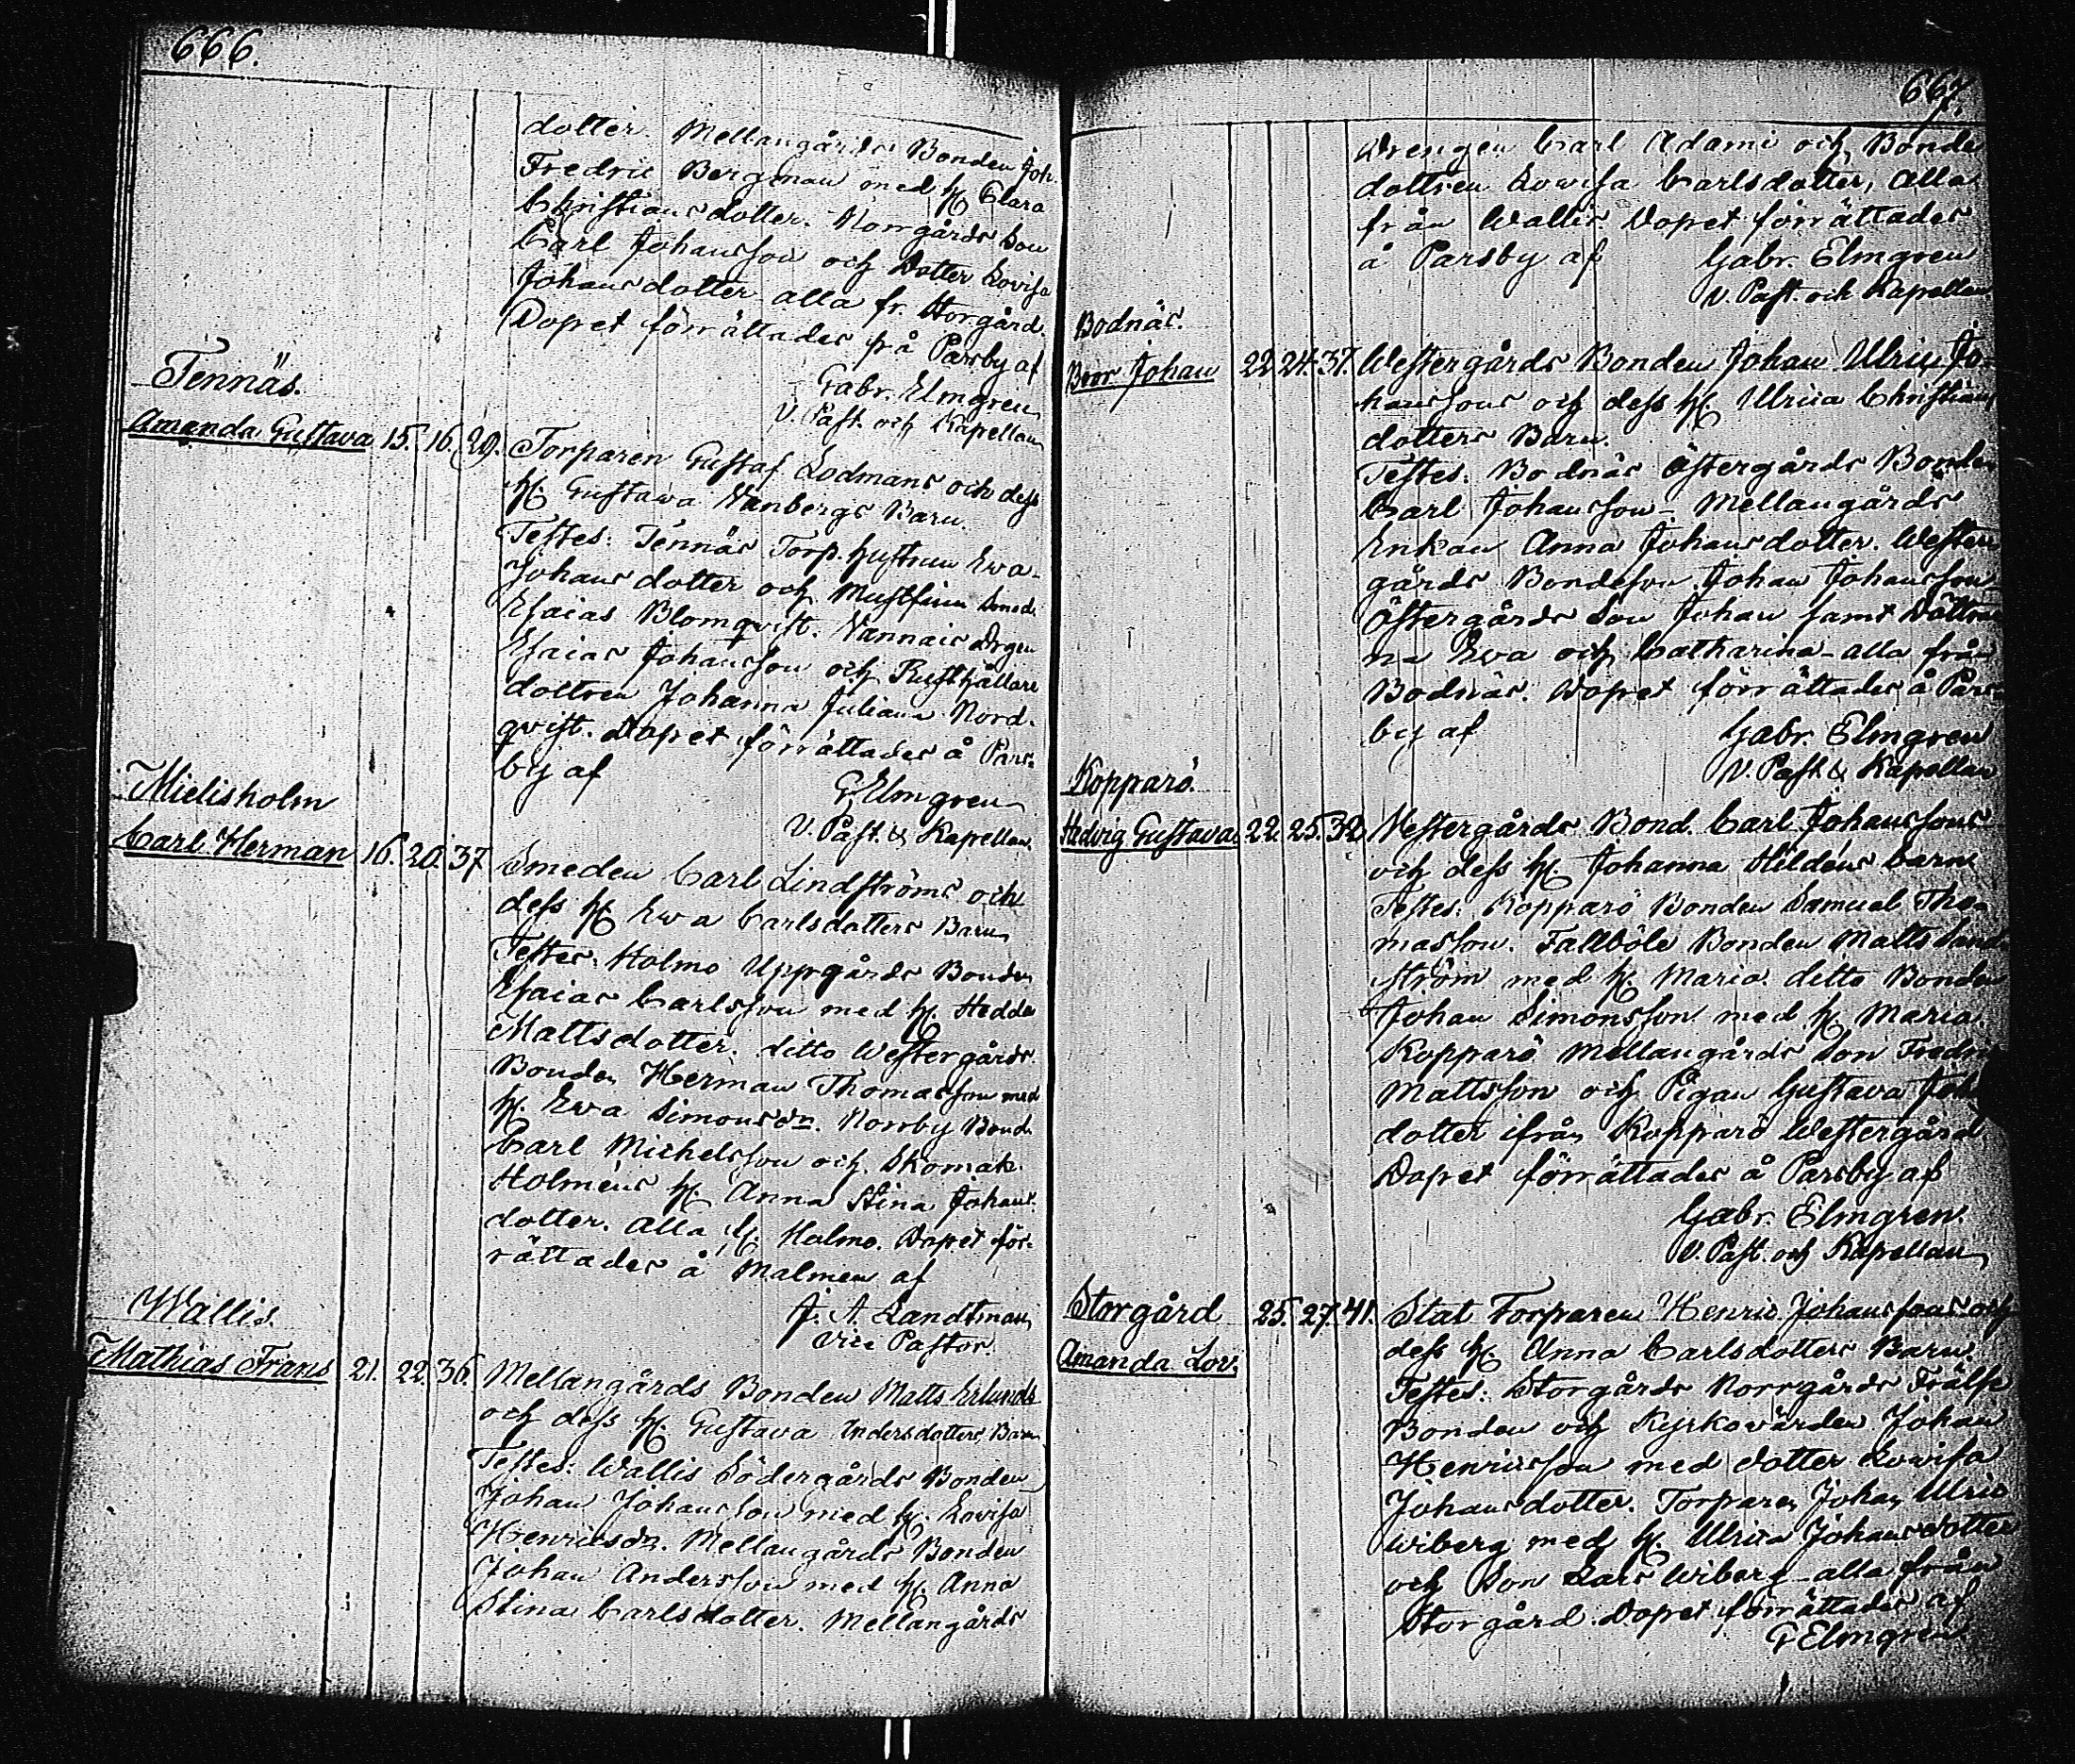 666.
dotter. Mellangårds Bonden Joh.
Fredric Bergman med H. Clara
Christiansdotter. Norrgårds Son
Carl Johansson och Dotter Lovisa
Johansdotter alla fr. Storgård.
Dopet förrättades på Parsby af
Gabr. Elmgren
V. Past. och Kapellan
Tennäs.
Amanda Gustava 15. 16. 29. Torparen Gustaf Lodmans och dess
H. Gustawa Wanbergs Barn.
Testes: Tennäs Torp. hustrun Ewa
Johansdotter och Smed.
Esaias Blomqvist. Wannais Drgen
Esaias Johansson och Rusthållare
dottren Johanna Juliana Nord-
qvist. Dopet förrättades å Pars-
by af
G. Elmgren
V. Past. & Kapellan.
Mielisholm
Carl Herman 16. 20. 37 Smeden Carl Lindströms och
dess H. Ewa Carlsdotters Barn
Testes. Holmo Uppgårds Bonden
Esaias Carlsson med H. Hedda
Mattsdotter. ditto Westergårds
Bonden Herman Thomasson med
H. Ewa Simonsdr. Norrby Bond.
Carl Michelsson och Skomak.
Holméns H. Anna Stina Johans-
dotter. alla fr. Holmo. Dopet för-
rättades å Malmen af
J. A. Zandtman
vice Pastor.
Wallis.
Mathias Frans 21. 22. 36. Mellangårds Bonden Matts Erlunds
och dess H. Gustava Andersdotters Barn
Testes: Wallis Södergårds Bonden
Johan Johansson med H. Lovisa
Henricsdr. Mellangårds Bonden
Johan Andersson med H. Anna
Stina Carlsdotter. Mellangårds
667.
Drengen Carl Adami och Bonde
dottren Lowisa Carlsdotter, alla
från Wallis. Dopet förrättades
å Parsby af Gabr. Elmgren
V. Past. och Kapellan
Bodnäs.
Johan 22 24. 37. Westergårds Bonden Johan Ulric Jo-
hanssons och dess H. Ulrica Christians
dotters Barn.
Testes: Bodnäs Östergårds Bonden
Carl Johansson - Mellangårds
Enkan Anna Johansdotter. Wester
gårds Bondeson Johan Johansson
Östergårds Son Johan samt Döttrar
na Ewa och Catharina - alla från
Bodnäs. Dopet förrättades å Pars-
by af Gabr. Elmgren
V. Past. & Kapellan
Kopparö.
Hedvig Gustava. 22. 25. 32. Westergårds Bond. Carl Johanssons
och dess H. Johanna Hildéns barn
Testes: Kopparö Bonden Samuel Tho-
masson. Fallböle Bonden Matts Sand-
ström med H. Maria. ditto Bonden
Johan Simonsson med H. Maria
Kopparö Mellangårds Son Fredric
Mattsson och Pigan Gustava Joh.
dotter ifrån Kopparö Westergård
Dopet förrättades å Parsby af
Gabr. Elmgren.
V. Past. och Kapellan
Storgård 25. 27. 41. Stat Torparen Henric Johanssons och
Amanda Lov. dess H. Anna Carlsdotters Barn.
Testes: Storgårds Norrgårds Frälse
Bonden och Kyrkovärden Johan
Henricsson med dotter Lowisa
Johansdotter. Torparen Johan Ulric
Wiberg med H. Ulrica Johansdotter
och Son Lars Wiberg - alla från
Storgård. Dopet förrättades af
G Elmgren